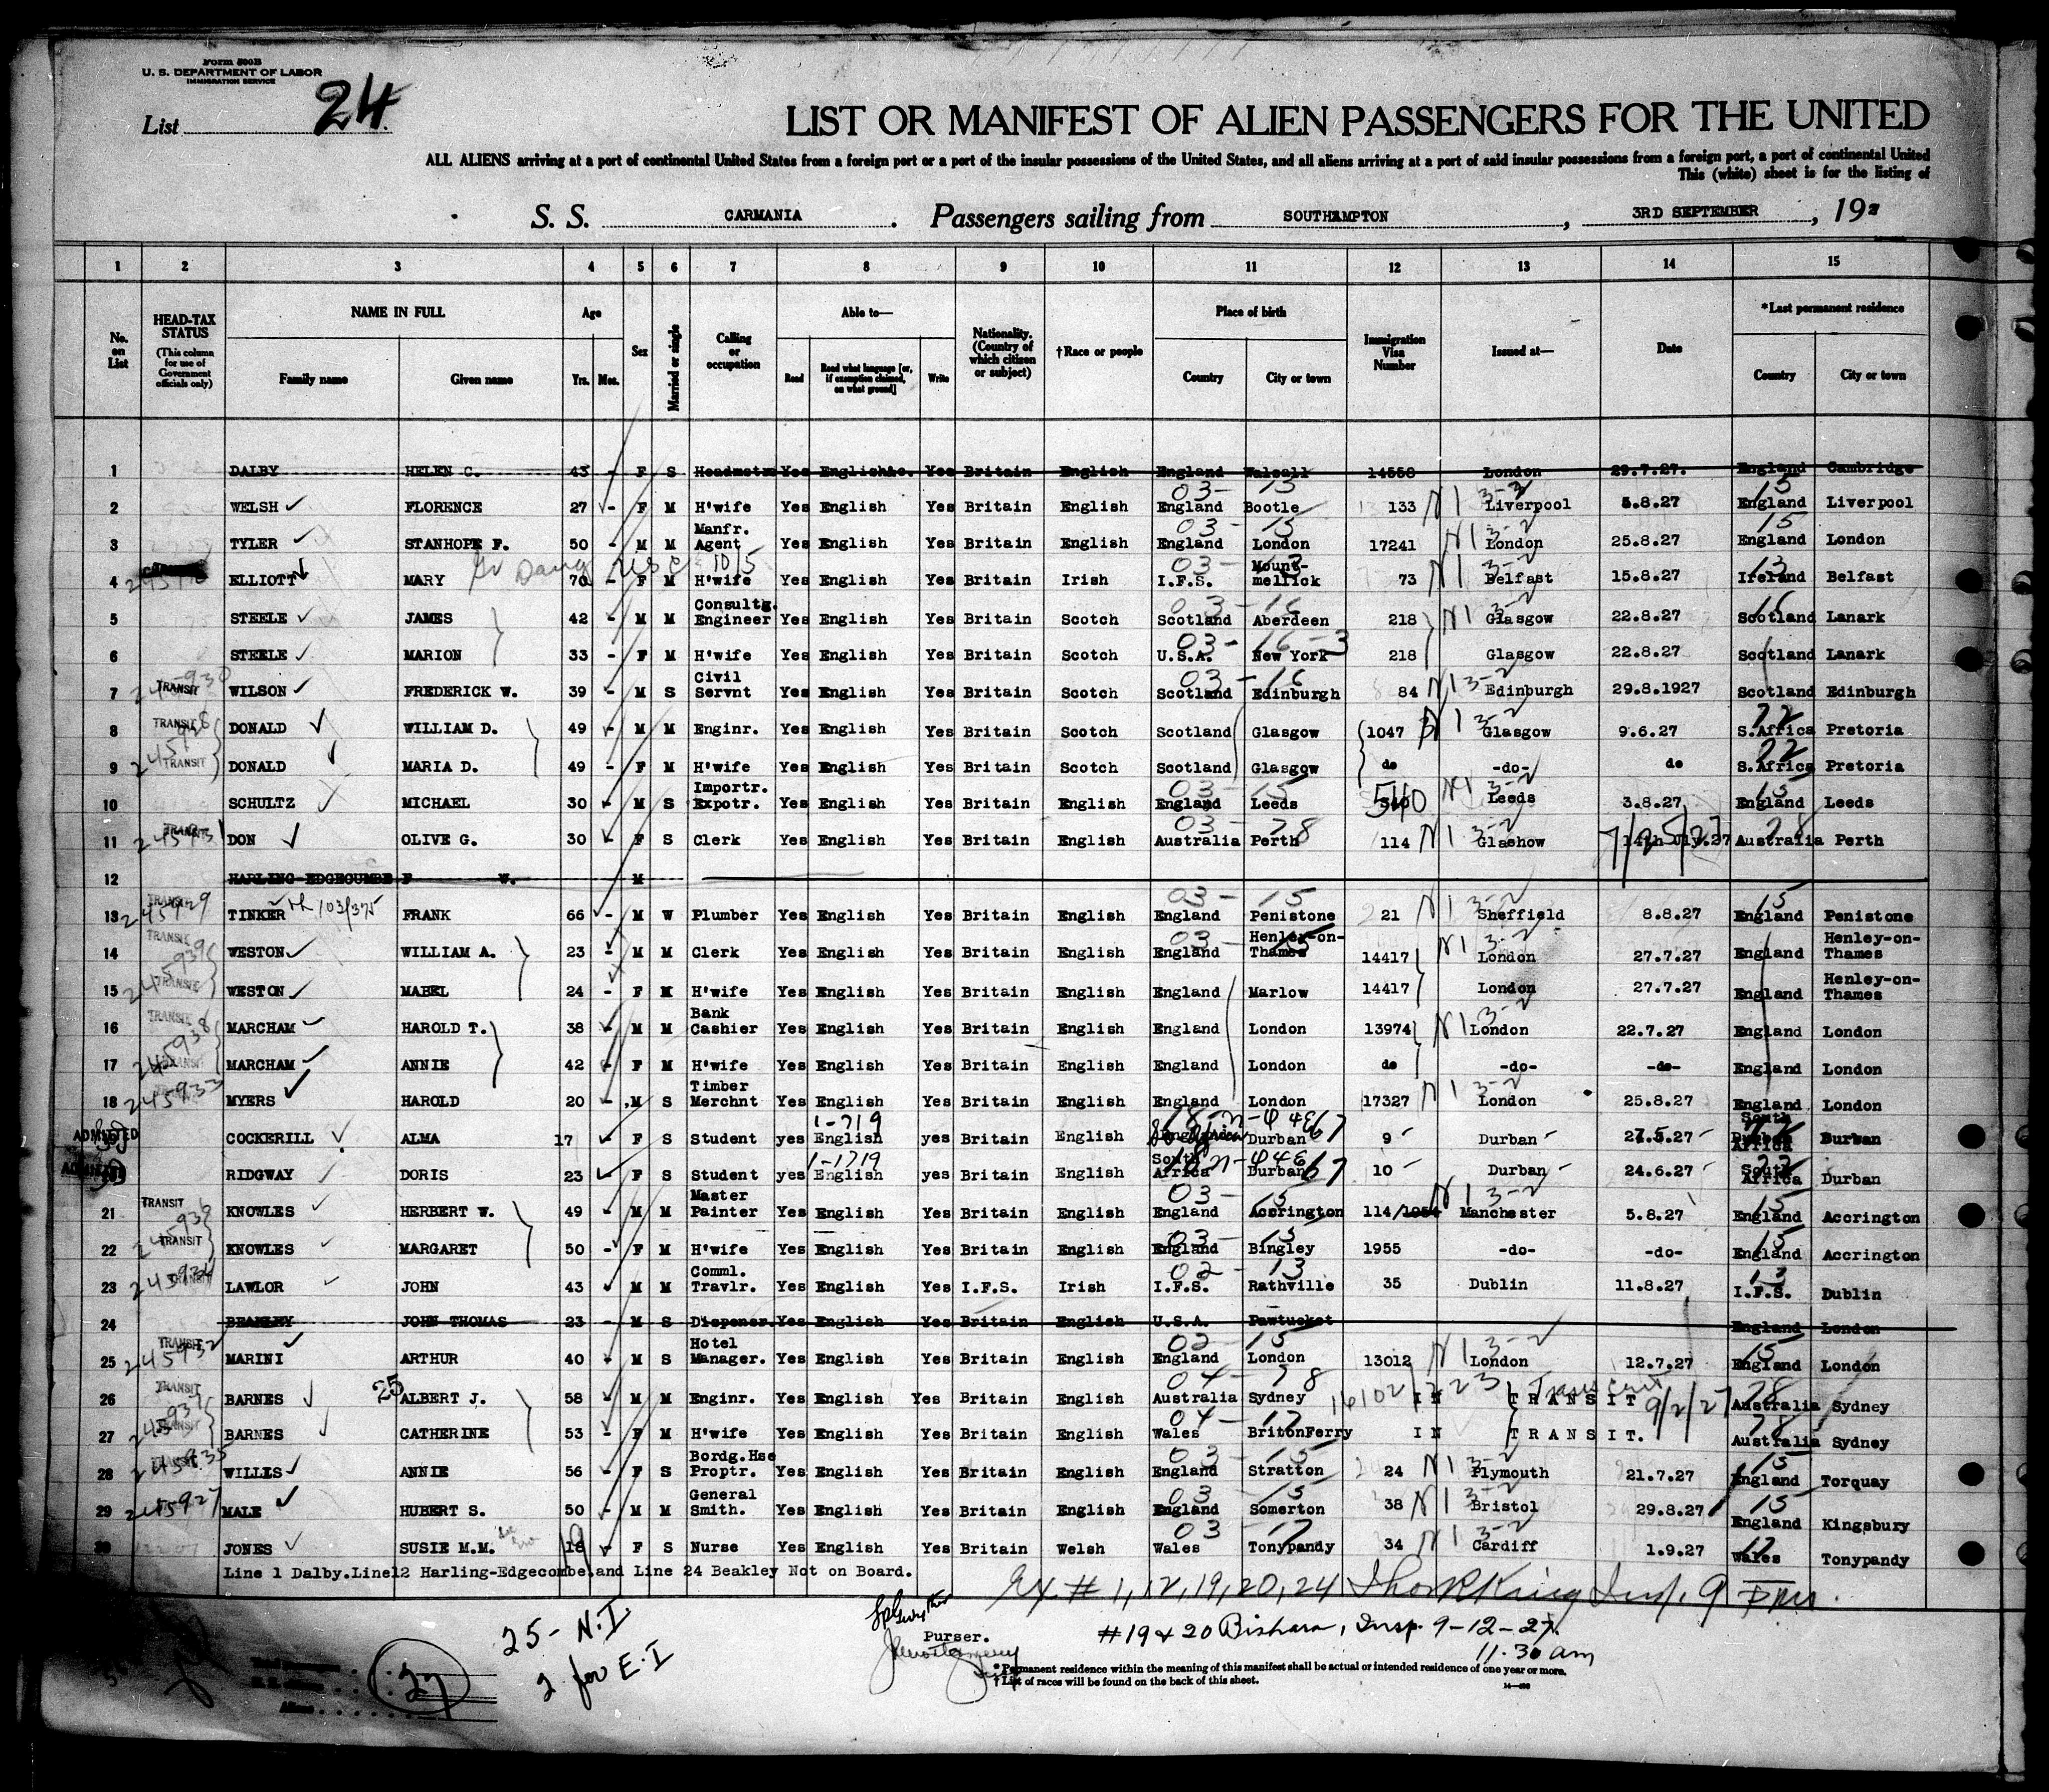 Form 500B
U. S. DEPARTMENT OF LABOR
IMMIGRATION SERVICE
List 24
LIST OR MANIFEST OF ALIEN PASSENGERS FOR THE UNITED
ALL ALIENS arriving at a port of continental United States from a foreign port or a port of the insular possessions of the United States, and all aliens arriving at a port of said insular possessions from a foreign port, a port of continental United
This (white) sheet is for the listing of
S. S. CARMANIA. Passengers sailing from SOUTHAMPTON, 3RD SEPTEMBER, 192
1 2 3 4 5 6 7 8 9 10 11 12 13 14 15
No. on List HEAD-TAX STATUS (This column for use of Government officials only) NAME IN FULL Family name Given name Age Yrs. Mos. Sex Married or single Calling or occupation Able to— Read Read what language [or, if exemption claimed, on what ground] Write Nationality. (Country of which citizen or subject) †Race or people Place of birth Country City or town Immigration Visa Number Issued at— Date *Last permanent residence Country City or town
1 DALBY HELEN C. 43 - F S Headmstrs Yes English Yes Britain English England Walsall 14558 London 29.7.27. England Cambridge
2 WELSH FLORENCE 27 - F M H'wife Yes English Yes Britain English 03- 15 England Bootle 133 N1 3-2 Liverpool 5.8.27 15 England Liverpool
3 TYLER STANHOPE F. 50 - M M Manfr. Agent Yes English Yes Britain English 03- 15 England London 17241 N1 3-2 London 25.8.27 15 England London
4 ELLIOTT MARY 70 - F M H'wife Yes English Yes Britain Irish 03- I.F.S. Mount-mellick 73 N1 3-2 Belfast 15.8.27 13 Ireland Belfast
5 STEELE JAMES 42 - M M Consultg. Engineer Yes English Yes Britain Scotch 03-16 Scotland Aberdeen 218 N1 3-2 Glasgow 22.8.27 16 Scotland Lanark
6 STEELE MARION 33 - F M H'wife Yes English Yes Britain Scotch 03-16-3 U.S.A. New York 218 Glasgow 22.8.27 Scotland Lanark
7 TRANSIT 245930 WILSON FREDERICK W. 39 - M S Civil Servnt Yes English Yes Britain Scotch 03-16 Scotland Edinburgh 84 N1 3-2 Edinburgh 29.8.1927 Scotland Edinburgh
8 TRANSIT 245928 DONALD WILLIAM D. 49 - M M Enginr. Yes English Yes Britain Scotch Scotland Glasgow 1047 N1 3-2 Glasgow 9.6.27 22 S.Africa Pretoria
9 TRANSIT DONALD MARIA D. 49 - F M H'wife Yes English Yes Britain Scotch Scotland Glasgow do -do- do 22 S.Africa Pretoria
10 SCHULTZ MICHAEL 30 - M S Importr. Expotr. Yes English Yes Britain English 03-15 England Leeds 540 N1 3-2 Leeds 3.8.27 15 England Leeds
11 TRANSIT 245931 DON OLIVE G. 30 - F S Clerk Yes English Yes Britain English 03-78 Australia Perth 114 N1 3-2 Glashow 7/25/27 78 Australia Perth
12 HARLING-EDGECUMBE F W. M
13 TRANSIT 245929 TINKER 103/375 FRANK 66 - M W Plumber Yes English Yes Britain English 03-15 England Penistone 21 N1 3-2 Sheffield 8.8.27 15 England Penistone
14 TRANSIT 245939 WESTON WILLIAM A. 23 - M M Clerk Yes English Yes Britain English 03-15 England Henley-on-Thames 14417 N1 3-2 London 27.7.27 England Henley-on-Thames
15 TRANSIT WESTON MABEL 24 - F M H'wife Yes English Yes Britain English England Marlow 14417 London 27.7.27 England Henley-on-Thames
16 TRANSIT 245938 MARCHAM HAROLD T. 38 - M M Bank Cashier Yes English Yes Britain English England London 13974 N1 3-2 London 22.7.27 England London
17 TRANSIT MARCHAM ANNIE 42 - F M H'wife Yes English Yes Britain English England London do -do- -do- England London
18 245933 MYERS HAROLD 20 - M S Timber Merchnt Yes English Yes Britain English England London 17327 N1 3-2 London 25.8.27 England London
ADMITTED COCKERILL ALMA 17 - F S Student yes 1-719 English yes Britain English Durban 9 Durban 27.5.27 South Africa Durban
RIDGWAY DORIS 23 - F S Student yes 1-1719 English yes Britain English South Africa Durban 10 Durban 24.6.27 22 South Africa Durban
21 TRANSIT 245936 KNOWLES HERBERT W. 49 - M M Master Painter Yes English Yes Britain English 03-15 England Accrington 114/1954 N1 3-2 Manchester 5.8.27 15 England Accrington
22 TRANSIT KNOWLES MARGARET 50 - F M H'wife Yes English Yes Britain English 03-15 England Bingley 1955 -do- -do- 15 England Accrington
23 TRANSIT 245934 LAWLOR JOHN 43 - M M Comml. Travlr. Yes English Yes I.F.S. Irish 02-13 I.F.S. Rathville 35 Dublin 11.8.27 13 I.F.S. Dublin
24 BEAKLEY JOHN THOMAS 23 - M S Dispener. Yes English Yes Britain English U.S.A. Pawtucket England London
25 TRANSIT 245932 MARINI ARTHUR 40 - M S Hotel Manager. Yes English Yes Britain English 02-15 England London 13012 N1 3-2 London 12.7.27 15 England London
26 TRANSIT 245937 BARNES 25 ALBERT J. 58 - M M Enginr. Yes English Yes Britain English 04-78 Australia Sydney 16102 IN TRANSIT 9/2/27 78 Australia Sydney
27 TRANSIT BARNES CATHERINE 53 - F M H'wife Yes English Yes Britain English 04-17 Wales BritonFerry IN TRANSIT. 78 Australia Sydney
28 TRANSIT 245935 WILLS ANNIE 56 - F S Bordg.Hse Proptr. Yes English Yes Britain English 03-15 England Stratton 24 N1 3-2 Plymouth 21.7.27 15 England Torquay
29 245927 MALE HUBERT S. 50 - M M General Smith. Yes English Yes Britain English 03-15 England Somerton 38 N1 3-2 Bristol 29.8.27 15 England Kingsbury
30 JONES SUSIE M.M. 19 F S Nurse Yes English Yes Britain Welsh 03-17 Wales Tonypandy 34 N1 3-2 Cardiff 1.9.27 17 Wales Tonypandy
Line 1 Dalby.Line12 Harling-Edgecombe.and Line 24 Beakley Not on Board.
Ex # 1,12,19,20,24 Insp. 9
25- N.I
2 for E.I
Purser.
#19 & 20 Bishara, Insp. 9-12-27.
11.30 am
27
*Permanent residence within the meaning of this manifest shall be actual or intended residence of one year or more.
†List of races will be found on the back of this sheet.